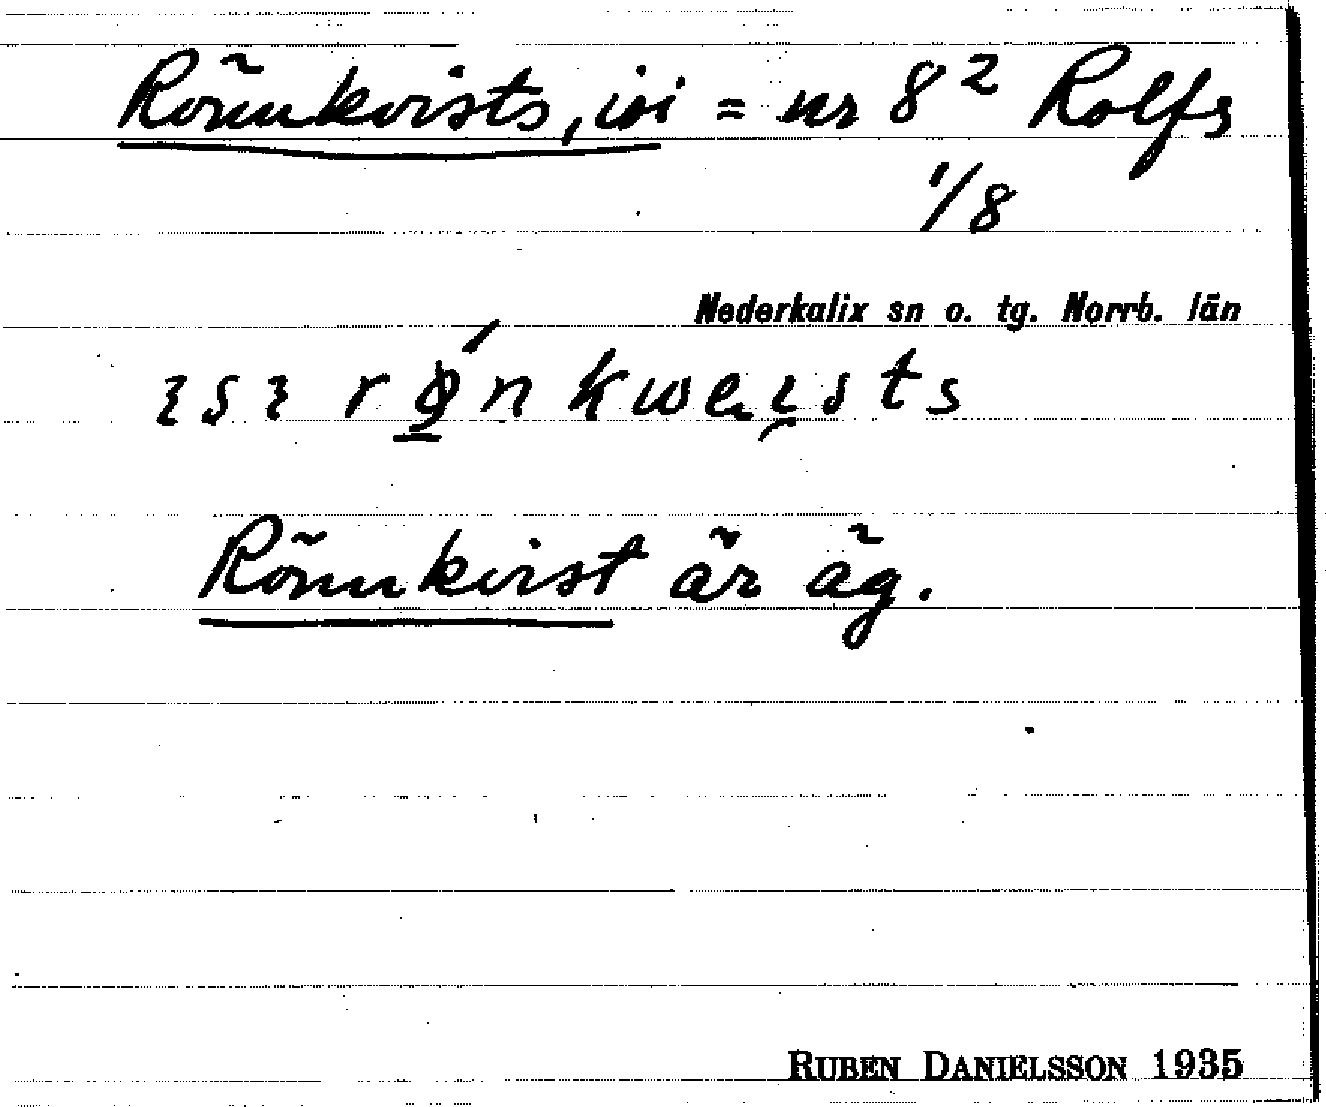 Rönnkvists, isi = nr 8² Rolfs
1/8
Nederkalix sn o. tg. Norrb. län
ısı rǿnkweısts
Rönnkvist är äg.
RUBEN DANIELSSON 1935